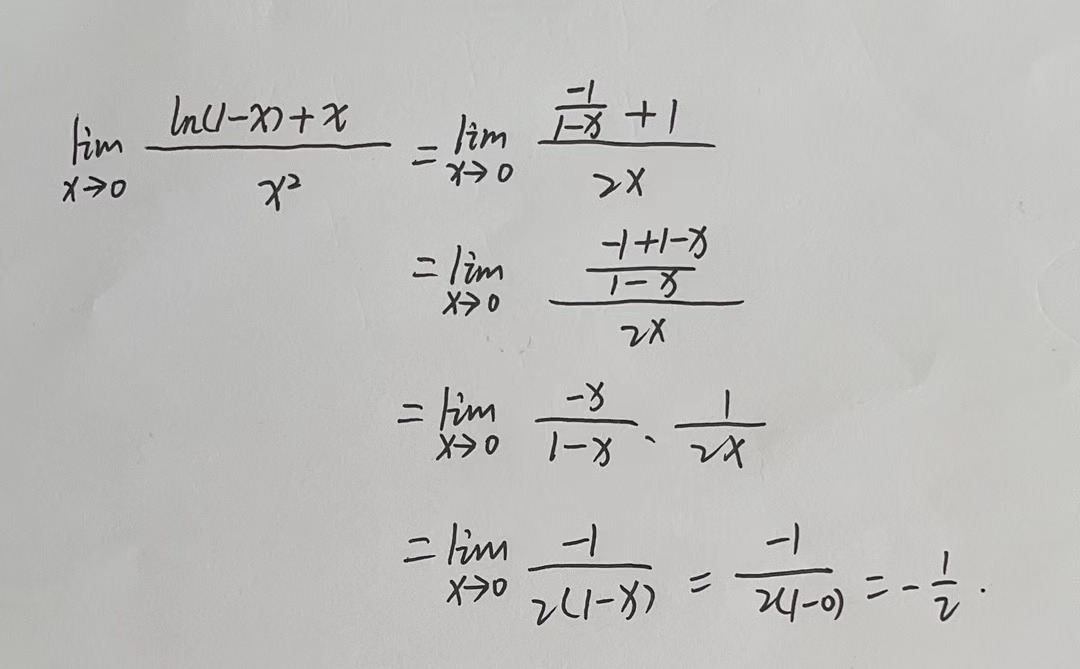 lim_{x→0} \frac{ln(1-x)+x}{x²} = lim_{x→0} \frac{\frac{-1}{1-x}+1}{2x}
= lim_{x→0} \frac{\frac{-1+1-x}{1-x}}{2x}
= lim_{x→0} \frac{-x}{1-x} · \frac{1}{2x}
= lim_{x→0} \frac{-1}{2(1-x)} = \frac{-1}{2(1-0)} = -\frac{1}{2}.